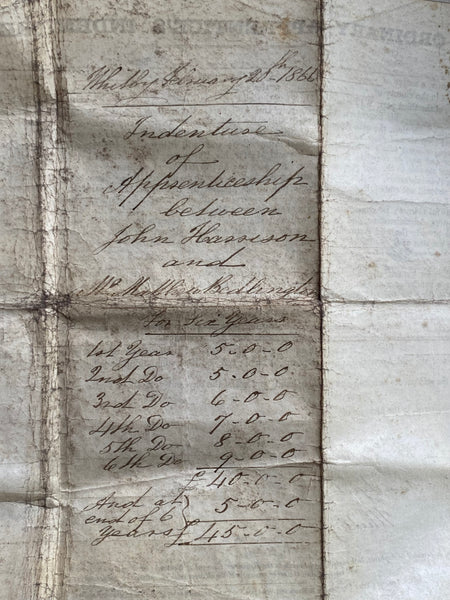 Whitby February 20th 1866
Indenture
of
Apprenticeship
between
John Harrison
and
Mr Matthew Kidlington
for Six Years
1st Year 5-0-0
2nd Do 5-0-0
3rd Do 6-0-0
4th Do 7-0-0
5th Do 8-0-0
6th Do 9-0-0
£ 40-0-0
And at 5-0-0
end of 6
Years £ 45-0-0